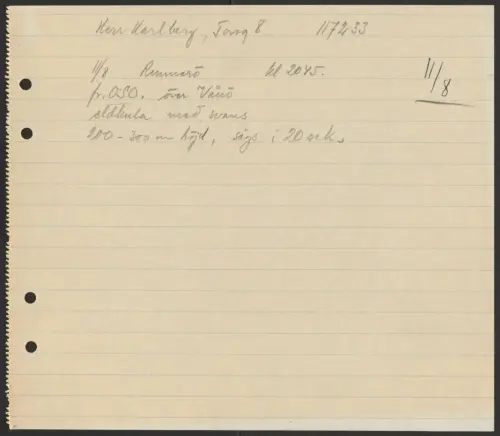 Herr Karlberg, Torsg 8 117233
11/8 Runmarö kl 2045.
11/8
fr. OSO. över Vånö
eldkula med svans
200-300 m höjd, sågs i 20 sek.